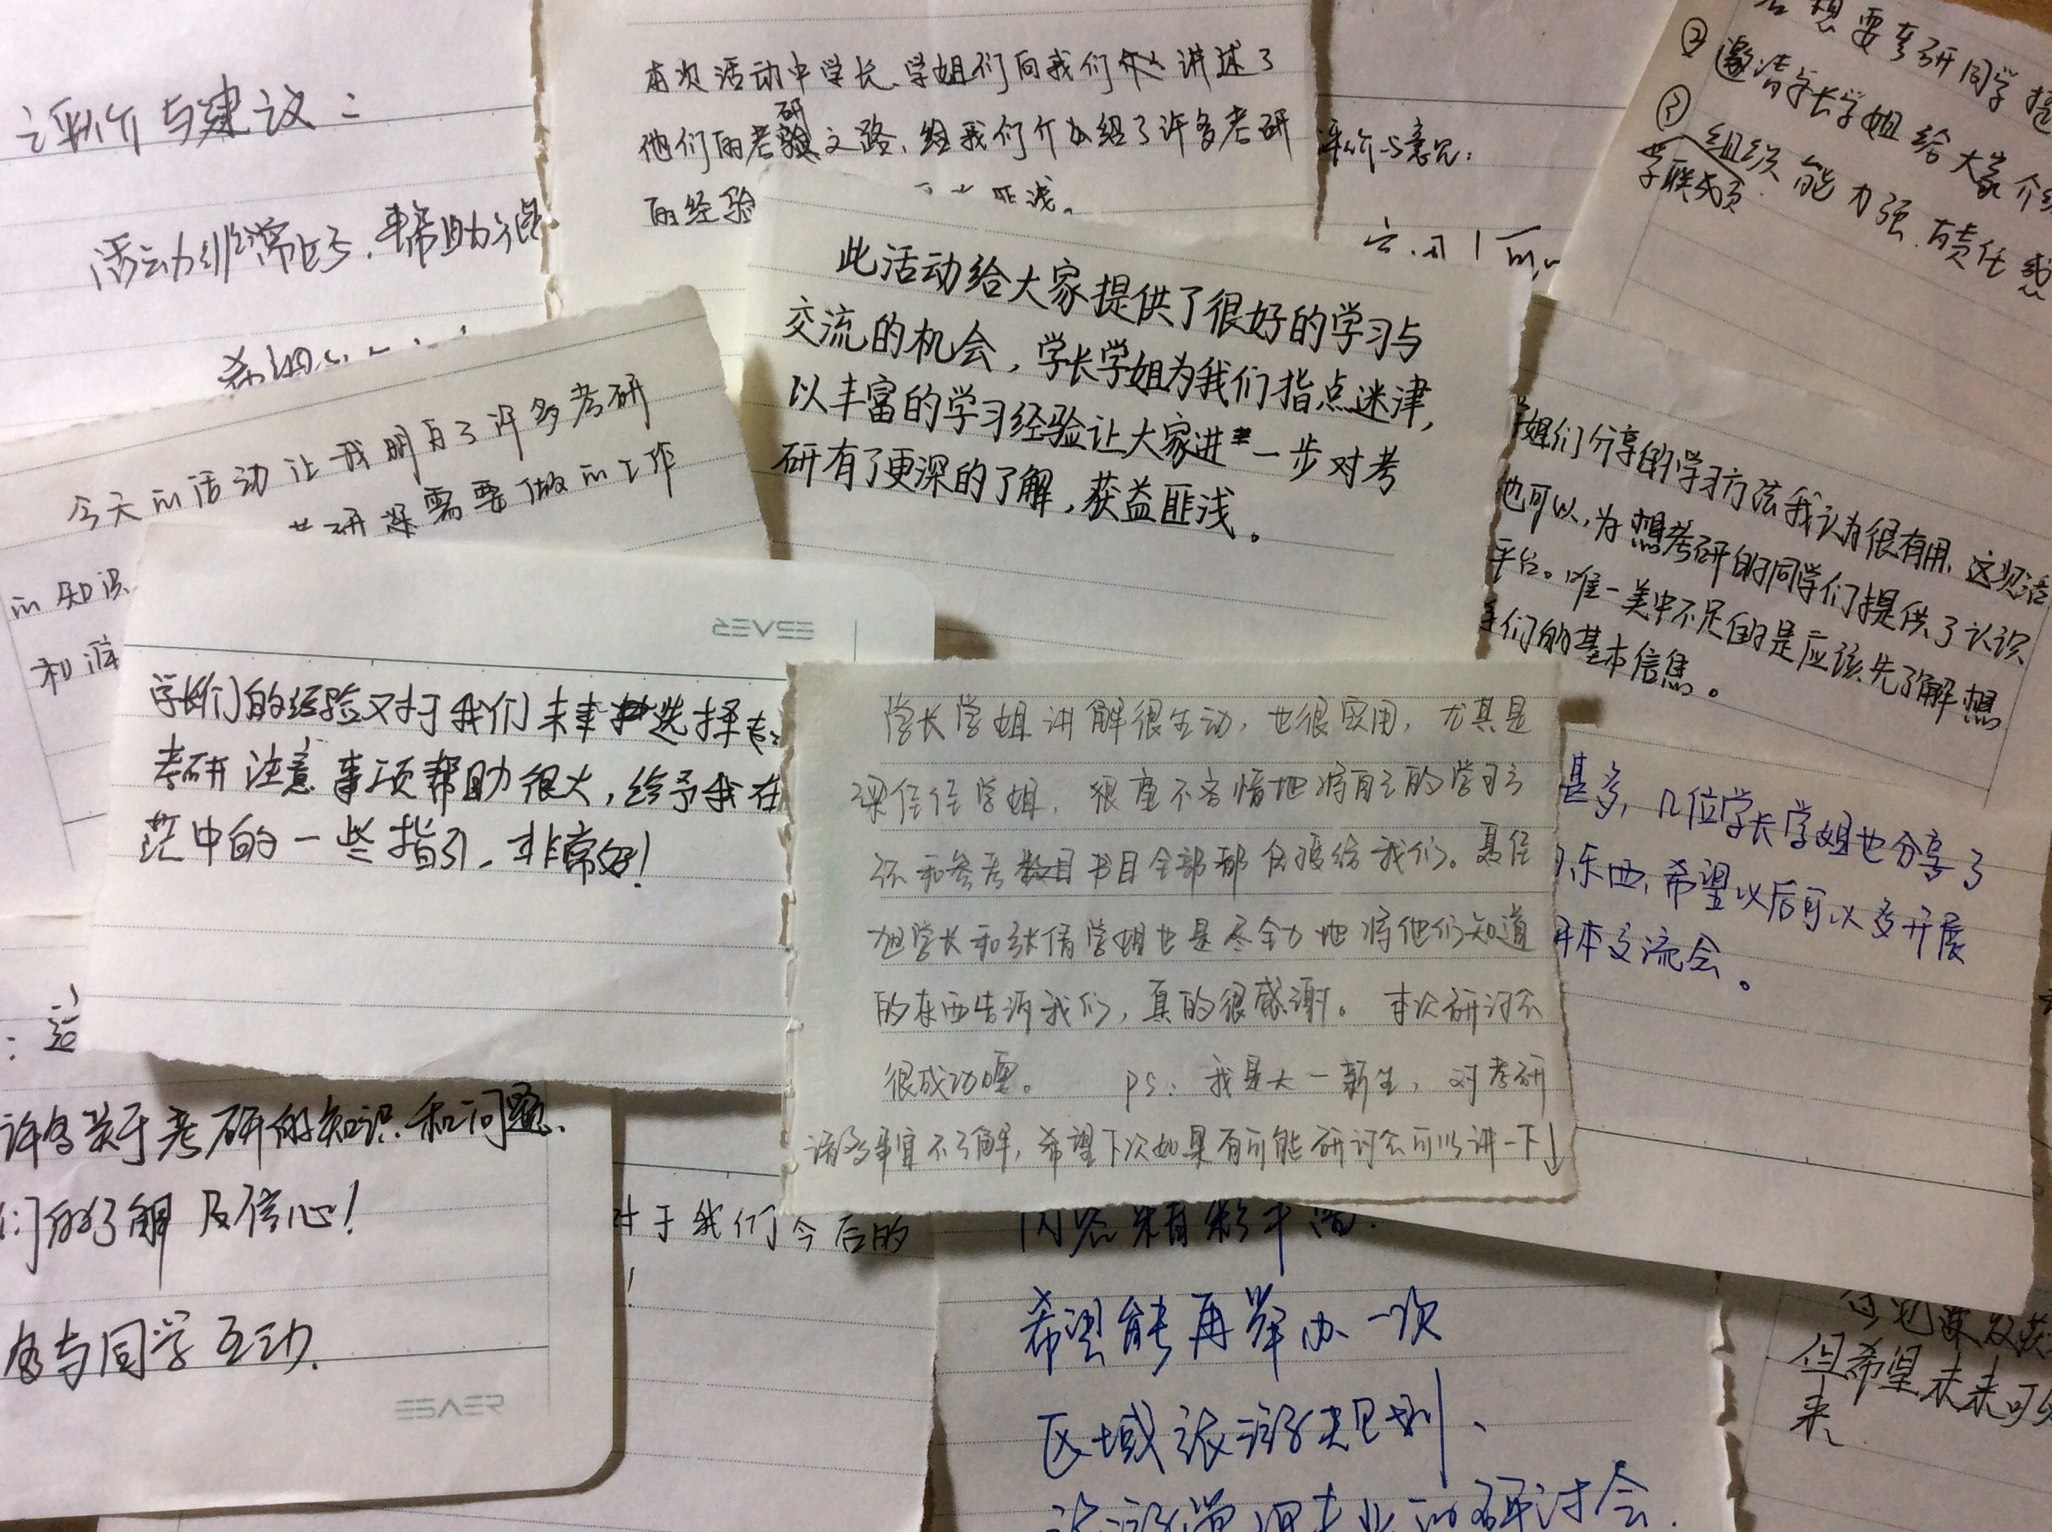 评价与建议：
活动非常好，帮助
本次活动中学长、学姐们向我们 讲述了
他们的考研之路，给我们介绍了许多考研
的经验
匪浅。
评价与意见：
想要考研同学提
② 邀请学长学姐给大家介绍
③ 组织能力强，有责任感
学联成员
此活动给大家提供了很好的学习与
交流的机会，学长学姐为我们指点迷津，
以丰富的学习经验让大家进一步对考
研有了更深的了解，获益匪浅。
今天的活动让我明白了许多考研
考研还需要做的工作
的知识
和
姐们分享的学习方法我认为很有用，这次活
也可以，为想考研的同学们提供了认识
平台。唯一美中不足的是应该先了解想
们的基本信息。
EBVEB
学长们的经验又对于我们未来选择专
考研注意事项帮助很大，给予我在
茫中的一些指引，非常好！
学长学姐讲解很生动，也很实用，尤其是
学姐，很毫不吝惜地将自己的学习方
和参考书目全部都给我们。聂
旭学长和张倩学姐也是尽全力地将他们知道
的东西告诉我们，真的很感谢。 本次研讨会
很成功噢。 PS：我是大一新生，对考研
诸多事宜不了解，希望下次如果有可能研讨会可以讲一下↓
甚多，几位学长学姐也分享了
东西，希望以后可以多开展
交流会。
许多关于考研的知识和问题，
们的了解及信心！
多与同学互动。
对于我们今后的
！
内容精彩丰富.
希望能再举办一次
区域旅游规划、
旅游管理专业的研讨会.
但希望未来可以
来